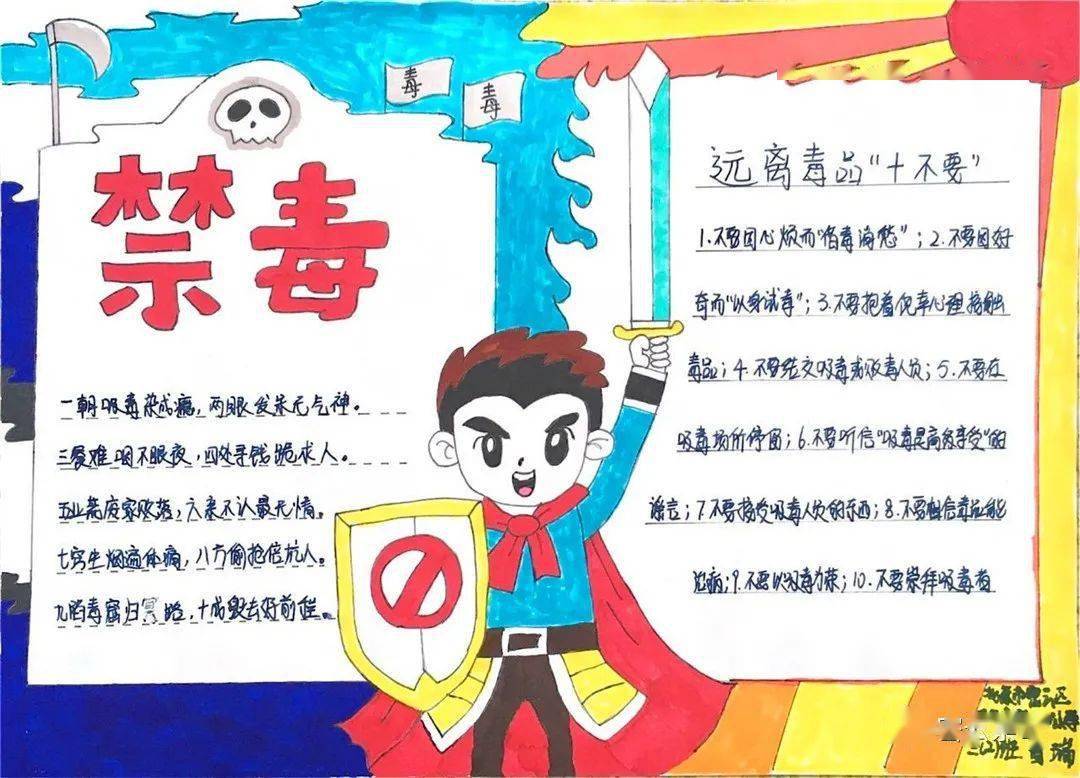 毒
毒
禁毒
一朝吸毒染成瘾，两眼发呆无气神。
三餐难咽不眠夜，四处寻钱跪求人。
五业荒废家败落，六亲不认最无情。
七窍生烟遍体痛，八方偷抢倍坑人。
九陷毒窟归冥路，十成毁去好前程。
远离毒品“十不要”
1.不要因心烦而“借毒消愁”；2.不要因好
奇而“以身试毒”；3.不要抱着侥幸心理接触
毒品；4.不要结交吸毒或贩毒人员；5.不要在
吸毒场所停留；6.不要听信“吸毒是高级享受”的
谣言；7.不要接受吸毒人员的东西；8.不要相信毒品能
治病；9.不要以吸毒为荣；10.不要崇拜吸毒者